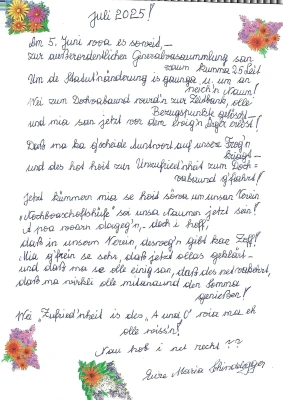 Juli 2025!
Am 5. Juni woa es soweid,–
zur außerordentlichen Generalvasammlung san
zaum kumma 25 Leit
Um de Statut'nänderung is ganga u. um an
neich'n Naum!
Wei zum Dochvabaund wurd'n zur Zeidbank, olle
Bezugspunkte gelöscht–
und mia san jetzt vor dem
Daß ma ka g'scheide Auntwort auf unsre Frog'n
kriagt–
und des hot hoid zur Unzufriednheit zum Doch-
vabaund g'fährt!
Jetzt kümmern mia se hoid söwa um unsan Verein
"Nochboaschoftshüfe" soi unsa Naumen jetzt san!
A poa woarn dageg'n, doch i hoff,
daß in unsern Verein, desweg'n gibt kae Zoff!
Mia g'frein se sehr, daß jetzt ollas geklärt–
und daß ma se olle einig san, daß des net vakehrt,
daß ma wirkli olle mitanaund den Somma
genießen!
Wei "Zufried'nheit is des "A und O" wia ma eh
olle wiss'n!
Nau hob i net recht ??
Eure Maria